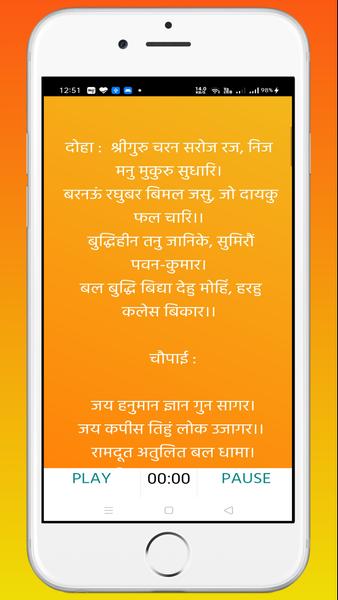 12:51
14.0
KB/S
98%
दोहा : श्रीगुरु चरन सरोज रज, निज
मनु मुकुरु सुधारि।
बरनऊं रघुबर बिमल जसु, जो दायकु
फल चारि।।
बुद्धिहीन तनु जानिके, सुमिरौं
पवन-कुमार।
बल बुद्धि बिद्या देहु मोहिं, हरहु
कलेस बिकार।।
चौपाई :
जय हनुमान ज्ञान गुन सागर।
जय कपीस तिहुं लोक उजागर।।
रामदूत अतुलित बल धामा।
PLAY 00:00 PAUSE